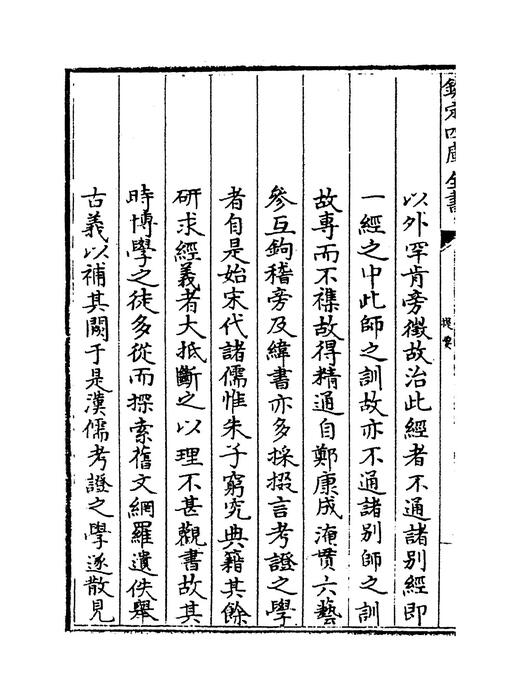 欽定四庫全書
提要
以外罕肯旁徵故治此經者不通諸別經即
一經之中此師之訓故亦不通諸別師之訓
故專而不襍故得精通自鄭康成淹貫六藝
參互鉤稽旁及緯書亦多採掇言考證之學
者自是始宋代諸儒惟朱子窮究典籍其餘
研求經義者大抵斷之以理不甚觀書故其
時博學之徒多從而探索舊文網羅遺佚舉
古義以補其闕于是漢儒考證之學遂散見